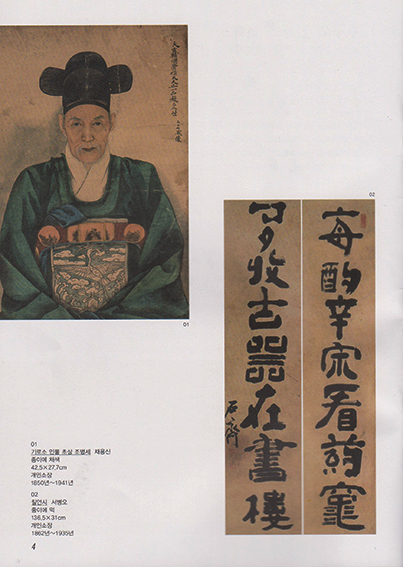 01
02
每酌辛看葯竈
多收古器在書樓
石齋
01
기로소 인물 초상 조병세 채용신
종이에 채색
42.5×27.7cm
개인소장
1850년～1941년
02
칠언시 서병오
종이에 먹
136.5×31cm
개인소장
1862년～1935년
4